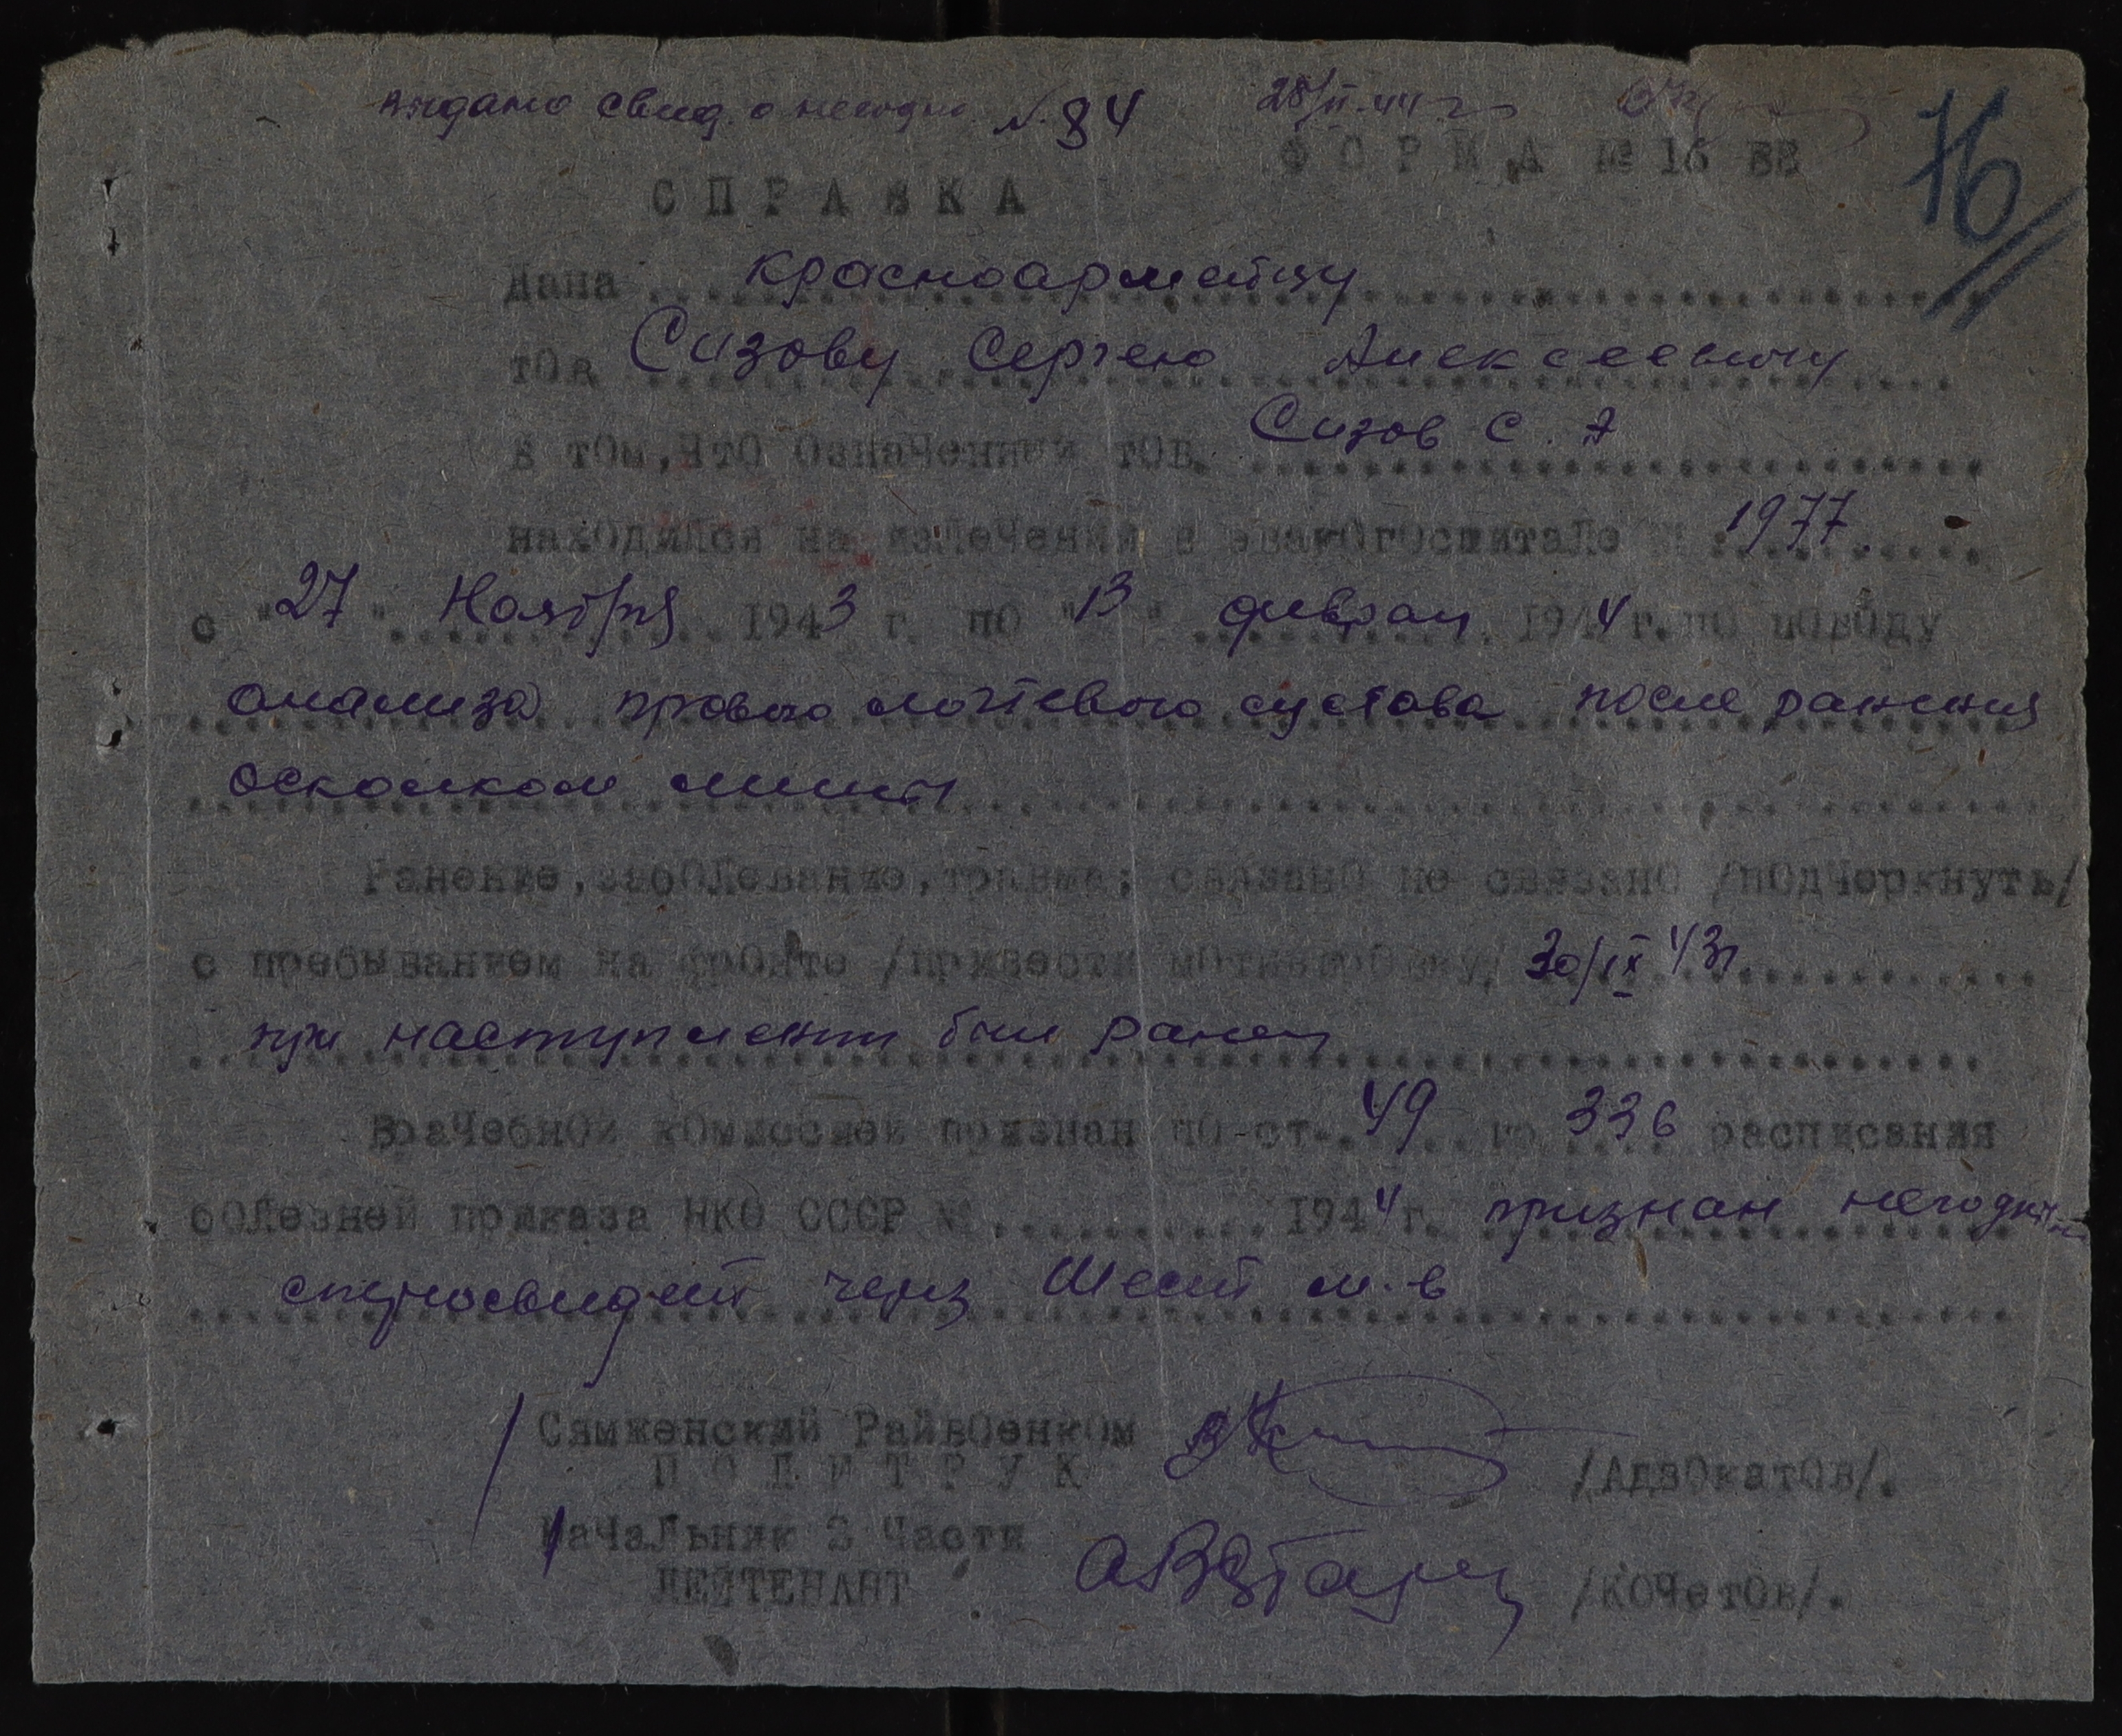 Выдано свид. о негодн. №84 28/II-44 г
ФОРМА № 16 ВВ
76
СПРАВКА
Дана красноармейцу
тов Сизову Сергею Алексеевичу
в том, что означенный тов. Сизов С. А
находился на излечении в эвакогоспитале № 1977
с "27" Ноября 1943 г. по "13" феврал 1944 г. по поводу
анализа правого локтевого сустава после ранения
осколком мины
Ранение, заболевание, травма; связано не связано /подчеркнуть/
с пребыванием на фронте /привести мотивировку/ 30/IX 43г
при наступлении был ранен
Врачебной комиссией признан по ст. 49 гр 336 расписания
болезней приказа НКО СССР № 1944 г. признан негодным
с переосвидет через шесть м-в
Сямженский Райвоенком
ПОЛИТРУК /Адвокатов/.
Начальник 3 Части
ЛЕЙТЕНАНТ /Кочетов/.